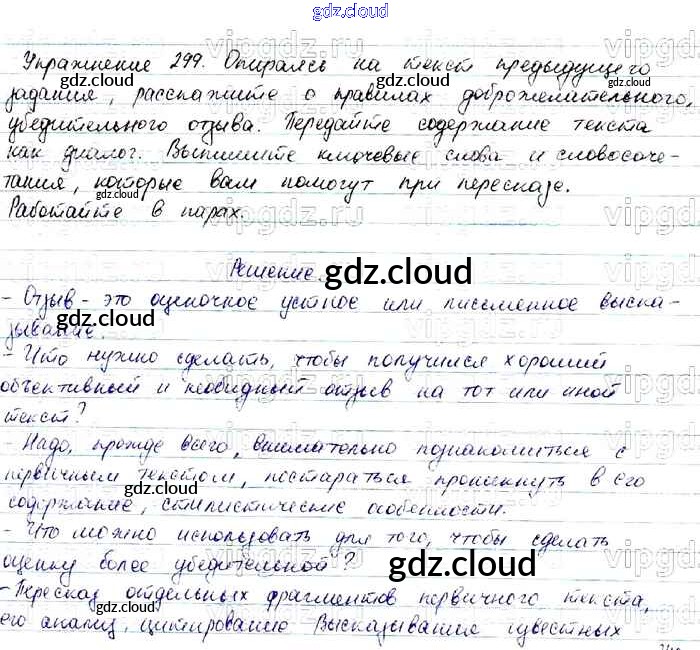 gdz.cloud
Упражнение 299. Опираясь на текст предыдущего
задания, расскажите о правилах доброжелательного,
убедительного отзыва. Передайте содержание текста
как диалог. Выпишите ключевые слова и словосоче-
тания, которые вам помогут при пересказе.
Работайте в парах.
Решение.
- Отзыв - это оценочное устное или письменное выска-
зывание.
- Что нужно сделать, чтобы получился хороший
объективный и необидный отзыв на тот или иной
текст?
- Надо, прежде всего, внимательно познакомиться с
первичным текстом, постараться проникнуть в его
содержание, стилистические особенности.
- Что можно использовать для того, чтобы сделать
оценку более убедительной?
- Пересказ отдельных фрагментов первичного текста,
его анализ, цитирование Высказывания известных